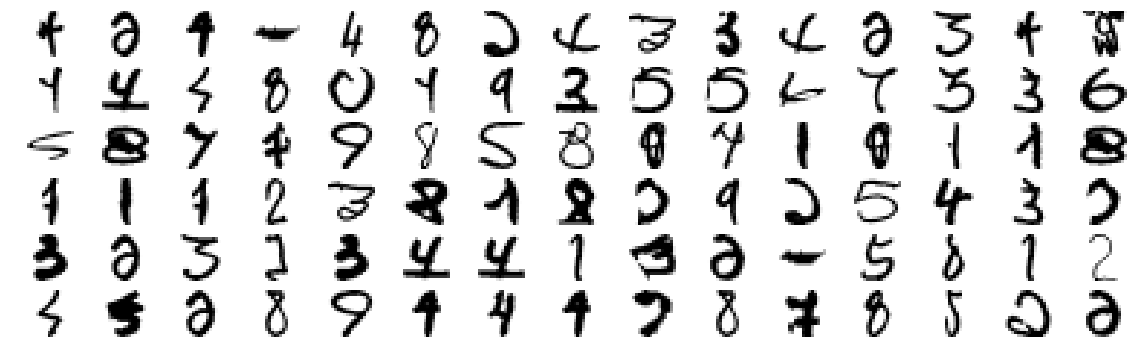 4 2 4 4 8 2 4 3 3 4 2 3 4
4 4 5 8 0 4 9 3 5 5 6 7 3 3 6
5 8 7 7 9 8 5 8 0 4 1 0 1 1 8
1 1 1 2 3 8 1 8 2 9 2 5 4 3 2
3 2 3 2 3 4 4 1 3 2 5 8 1 2
5 5 2 8 9 4 4 4 7 8 7 8 5 2 2